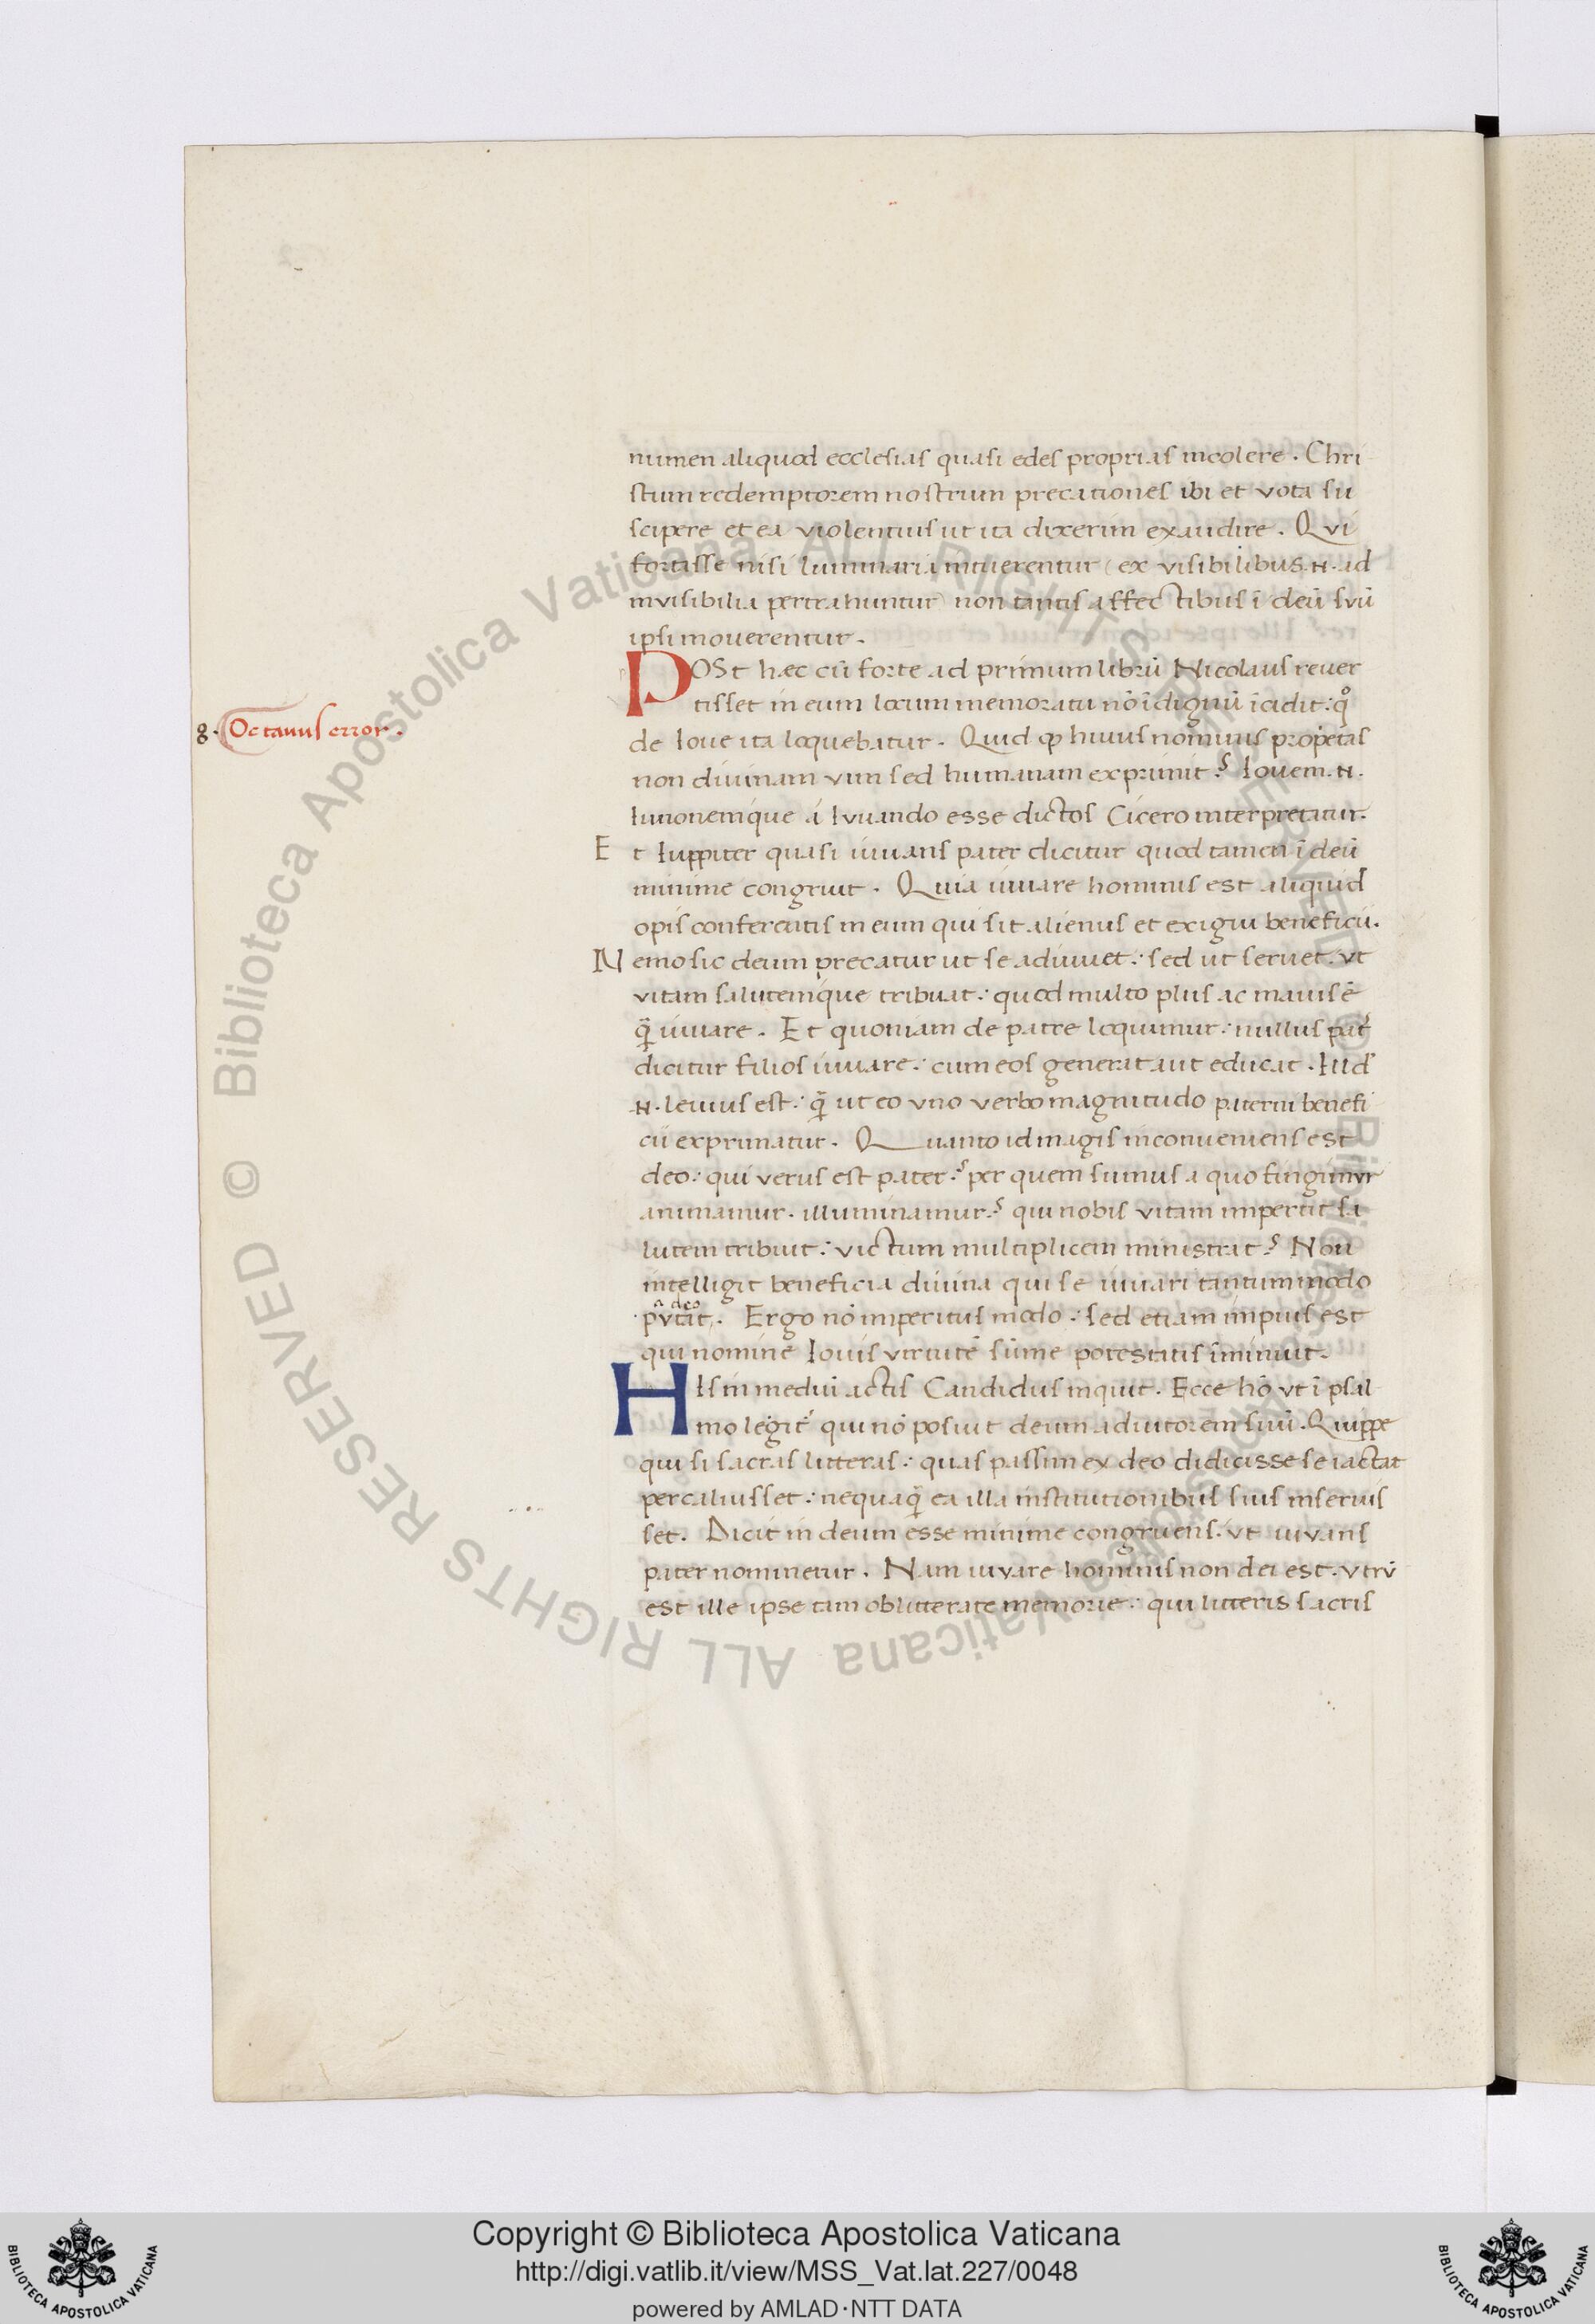 numen aliquod ecclesias quasi edes proprias incolere. Chri
stum redemptorem nostrum precationes ibi et vota su
scipere et ea violentius ut ita dixerim exaudire. Qvi
fortasse nisi luminaria intuerentur (ex visibilibus .n. ad
invisibilia pertrahuntur) non tantis affectibus ī deū svū
ipsi moverentur.
POSt hæc cū forte ad primum librū Nicolaus rever
8. Octavus error.
tisset in eum locum memoratu nō īdignū īcidit: qͦ
de Iove ita loquebatur. Quid ꝙ huius nominis propetas
non divinam vim sed humanam exprimit? Iovem .n.
Iunonemque á Iuvando esse dictos Cicero interpretatur.
Et Iuppiter quasi iuvans pater dicitur quod tamen ī deū
minime congruit. Quia iuvare hominis est aliquid
opis conferentis in eum qui sit alienus et exigui beneficii.
Nemo sic deum precatur ut se adiuvet: sed ut servet. vt
vitam salutemque tribuat: quod multo plus ac maius ē
q̄ iuvare. Et quoniam de patre loquimur: nullus pat̄
dicitur filios iuvare: cum eos generat aut educat. Illd
.n. levius est: q̄ ut eo vno verbo magnitudo paterni benefi
cii exprimatur. Quanto id magis inconveniens est
deo: qui verus est pater? per quem sumus a quo fingimvr
animamur. illuminamur? qui nobis vitam impertit sa
lutem tribuit: victum multiplicem ministrat? Non
intelligit beneficia divina qui se iuvari tantummodo
a deo
pvtat. Ergo nō imperitus modo: sed etiam impius est
qui nomine Iovis virtutē sūme potestatis īminuit.
HIs in mediū actis Candidus inquit. Ecce hō vt ī psal
mo legit̄ qui nō posuit deum adiutorem suū. Quippe
qui si sacras litteras: quas passim ex deo didicisse se iactat
percaluisset: nequaq̄ ea illa institutionibus suis inseruis
set. Dicit in deum esse minime congruens. vt iuvans
pater nominetur. Nam iuvare hominis non dei est. vtrū
est ille ipse tam oblitterate memorie: qui litteris sacris
Copyright © Biblioteca Apostolica Vaticana
http://digi.vatlib.it/view/MSS_Vat.lat.227/0048
powered by AMLAD·NTT DATA
BIBLIOTECA APOSTOLICA VATICANA
BIBLIOTECA APOSTOLICA VATICANA
© Biblioteca Apostolica Vaticana ALL RIGHTS RESERVED © Biblioteca Apostolica Vaticana ALL RIGHTS RESERVED